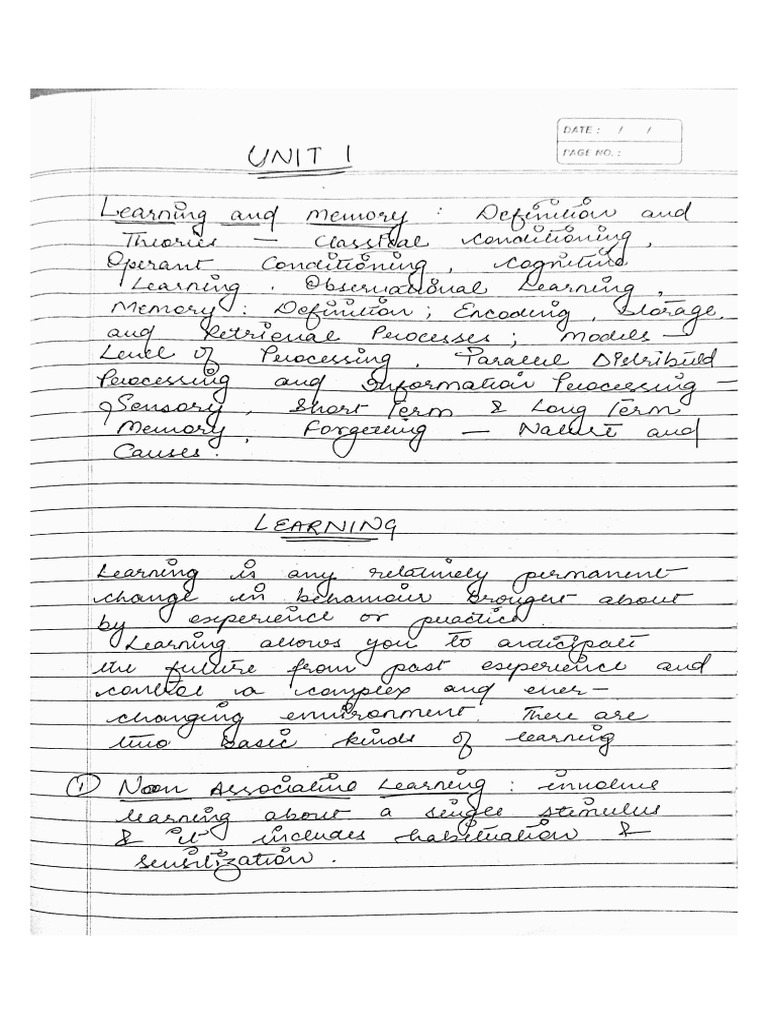 DATE : / /
PAGE NO. :
UNIT 1
Learning and Memory : Definition and
Theories — Classical Conditioning,
Operant Conditioning, Cognitive
Learning. Observational Learning,
Memory : Definition; Encoding, Storage,
and Retrieval Processes; Models —
Level of Processing, Parallel Distributed
Processing and Information Processing —
Sensory, Short Term & Long Term
Memory, Forgetting — Nature and
Causes.
LEARNING
Learning is any relatively permanent
change in behaviour brought about
by experience or practice.
Learning allows you to anticipate
the future from past experience and
control a complex and ever-
changing environment. There are
two basic kinds of learning
① Non Associative Learning : involve
learning about a single stimulus
& it includes habituation &
sensitization.